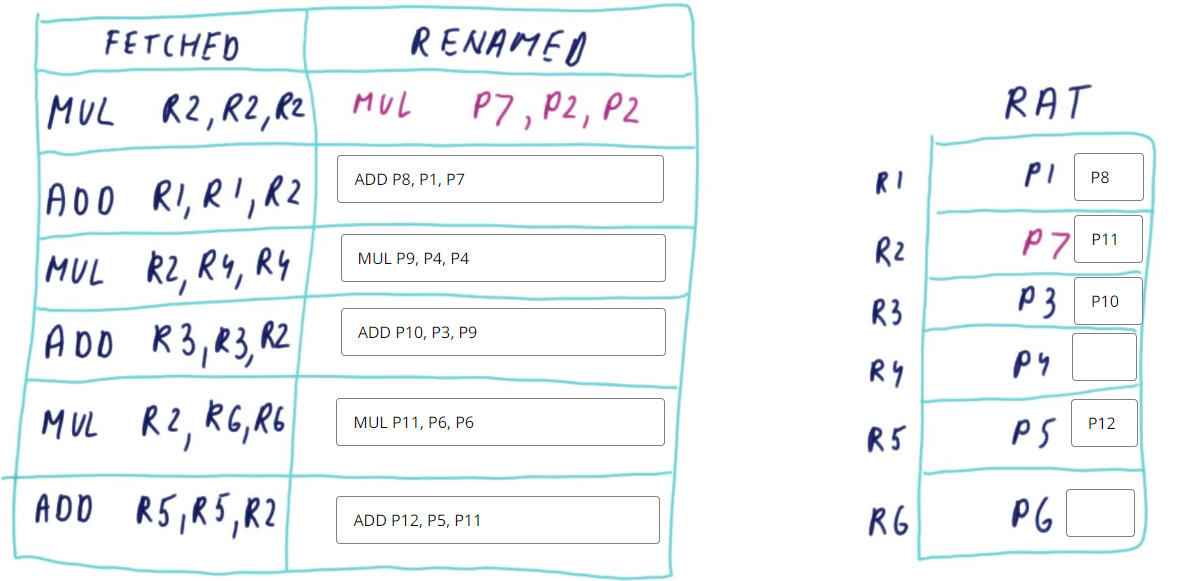 FETCHED RENAMED
MUL R2,R2,R2 MUL P7,P2,P2
ADD R1,R1,R2 ADD P8, P1, P7
MUL R2,R4,R4 MUL P9, P4, P4
ADD R3,R3,R2 ADD P10, P3, P9
MUL R2,R6,R6 MUL P11, P6, P6
ADD R5,R5,R2 ADD P12, P5, P11
RAT
R1 P1 P8
R2 P7 P11
R3 P3 P10
R4 P4
R5 P5 P12
R6 P6